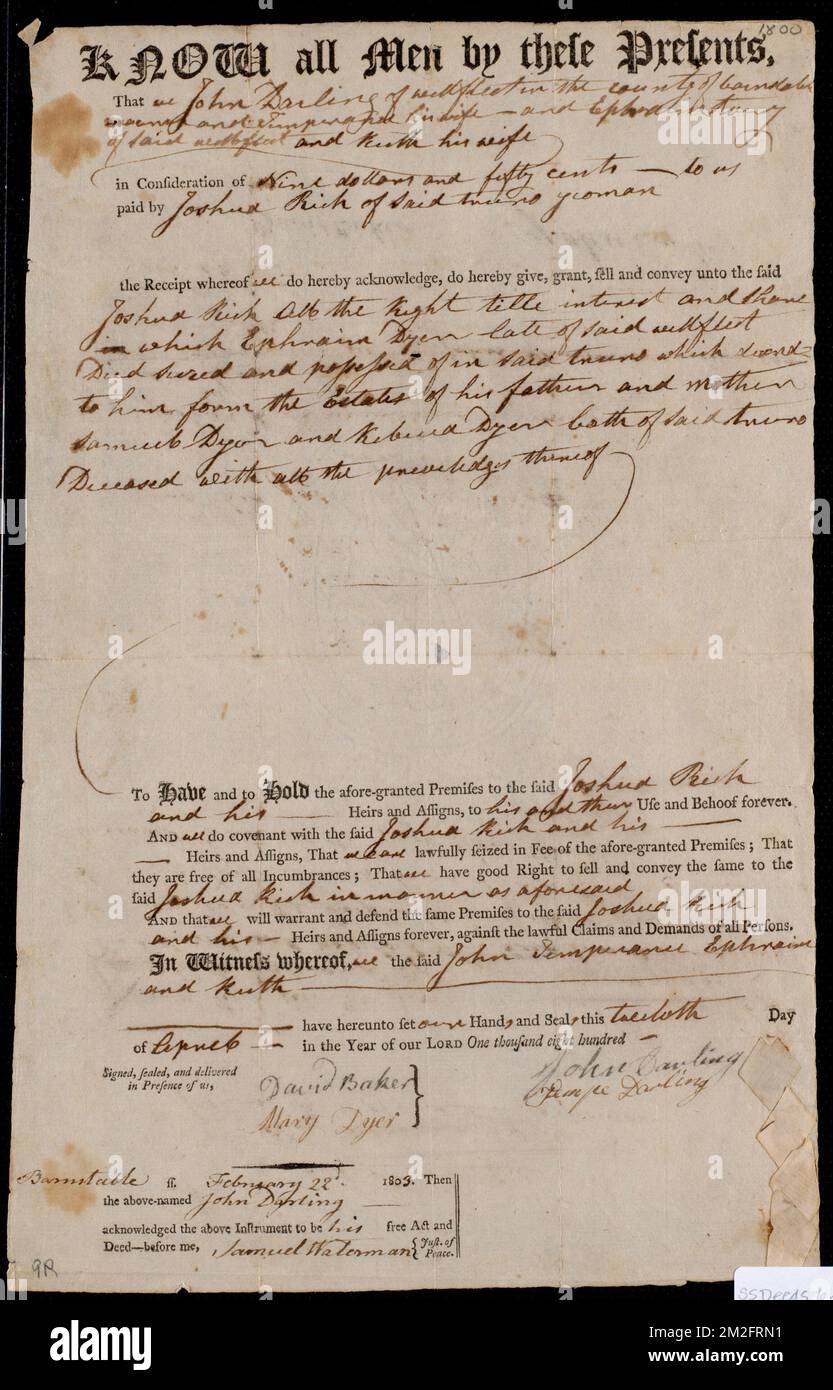 1800
KNOW all Men by these Presents,
That we John Darling of wellfleet in the county of barnstable
and Temperance his wife – and Ephraim
of said wellfleet and Ruth his wife
in Consideration of Nine dollars and fifty cents — to us
paid by Joshua Rich of said truro yeoman
the Receipt whereof we do hereby acknowledge, do hereby give, grant, sell and convey unto the said
Joshua Rich All the Right title interest and Share
in which Ephraim Dyer late of said wellfleet
Died seized and possessed of in said truro which
to him form the Estates of his father and mother
Samuel Dyer and Dyer both of said truro
Deceased with all the preveledges thereof
To Have and to Hold the afore-granted Premises to the said Joshua Rich
and his — Heirs and Assigns, to his and their Use and Behoof forever.
AND we do covenant with the said Joshua Rich and his —
— Heirs and Assigns, That we are lawfully seized in Fee of the afore-granted Premises; That
they are free of all Incumbrances; That we have good Right to sell and convey the same to the
said Joshua Rich in manner as aforesaid
AND that we will warrant and defend the same Premises to the said Joshua Rich
and his — Heirs and Assigns forever, against the lawful Claims and Demands of all Persons.
In Witness whereof, we the said John Temperance Ephraim
and Ruth —
— have hereunto set our Hands and Seals this twelvth Day
of Aprel — in the Year of our LORD One thousand eight hundred —
Signed, sealed, and delivered
in Presence of us,
John Darling
Tempe Darling
David Baker
Mary Dyer
Barnstable ss. February 22d. 1803. Then
the above-named John Darling —
acknowledged the above Instrument to be his free Act and
Deed—before me, Samuel Waterman { Just. of Peace.
9R
alamy
alamy
Image ID: 2M2FRN1
www.alamy.com